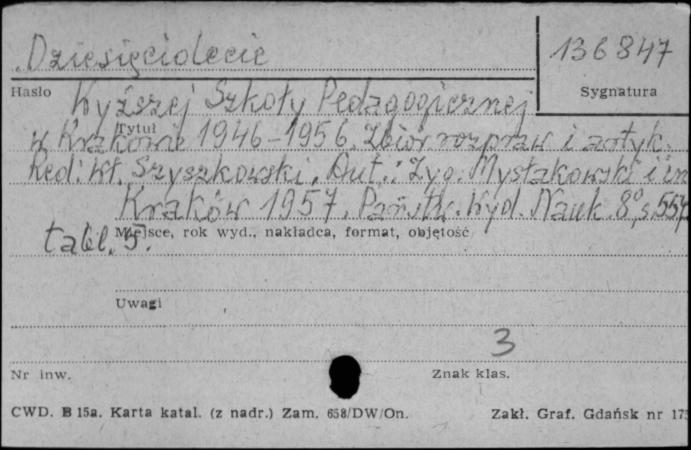 Dziesięciolecie
136847
Hasło
Sygnatura
Wyższej Szkoły Pedagogicznej
Tytuł
w Krakowie 1946-1956. Zbiór rozpraw i artyk.
Red.: Wł. Szyszkowski. Aut.: Zyg. Mysłakowski i in
Kraków 1957. Państw. Wyd. Nauk. 8°, s. 557,
tabl. 5.
Miejsce, rok wyd., nakładca, format, objętość
Uwagi
3
Nr inw.
Znak klas.
CWD. B 15a. Karta katal. (z nadr.) Zam. 658/DW/On.
Zakł. Graf. Gdańsk nr